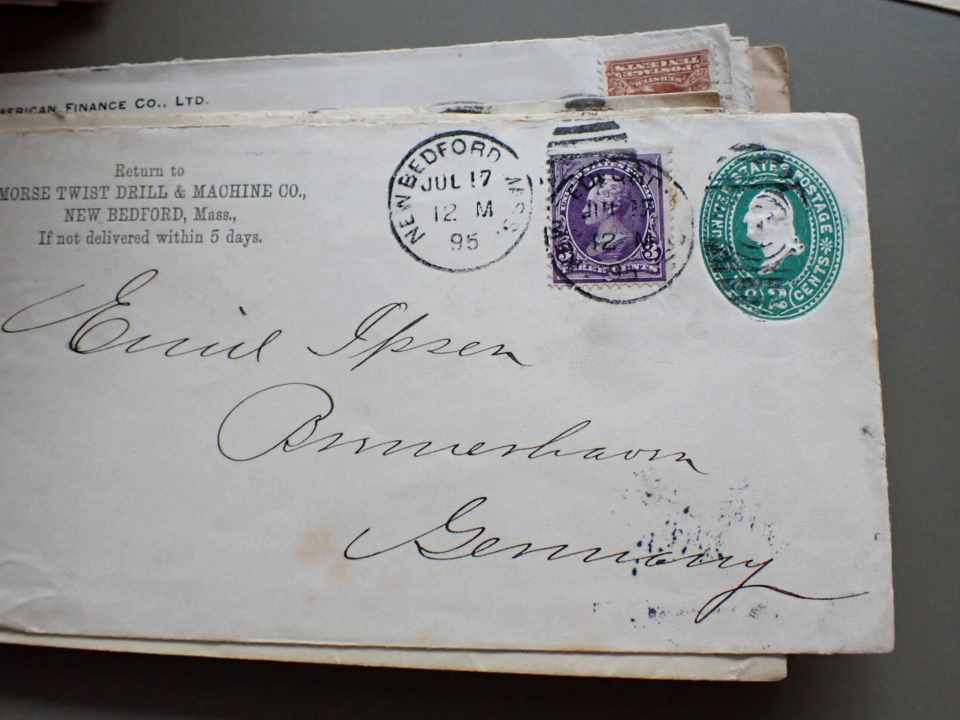 AMERICAN FINANCE CO., LTD.
POSTAGE
TEN CENTS
Return to
MORSE TWIST DRILL & MACHINE CO.,
NEW BEDFORD, Mass.,
If not delivered within 5 days.
NEW BEDFORD MASS
JUL 17
12 M
95
12 M
UNITED STATES POSTAGE
2 CENTS
Emil Ipsen
Bremerhaven
Germany